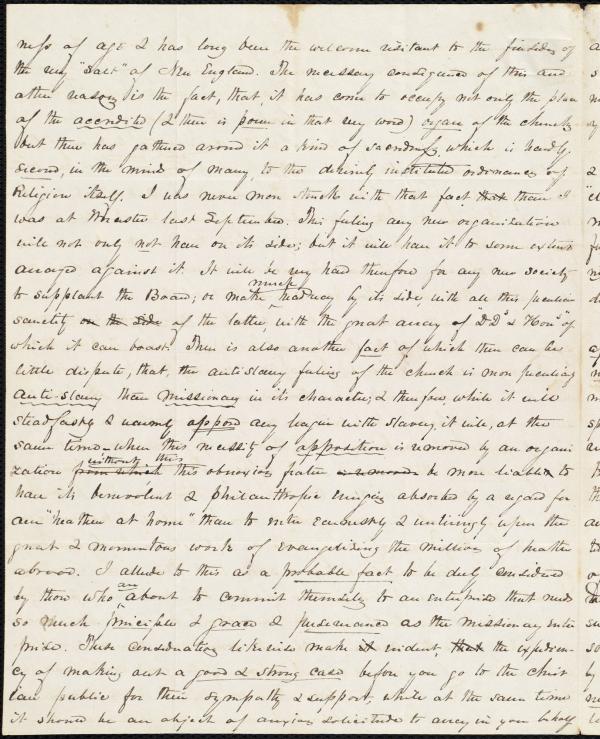 ness of age & has long been the welcome visitant to the firesides of
the very "salt" of New England. The necessary consequence of this and
other reasons is the fact, that, it has come to occupy not only the place
of the accredited (& there is power in that very word) organ of the church,
but there has gathered around it a kind of sacredness which is hardly
second, in the minds of many, to the divinely instituted ordinances of
Religion itself. I was never more struck with that fact that than I
was at Worcester last September. This feeling any new organization
will not only not have on its side; but it will have it to some extent
arrayed against it. It will be very hard therefore for any new society
to supplant the Board; or make much headway by its side, with all this peculiar
sanctity on the side of the latter, with the great array of "D.Ds & Hons" of
which it can boast. There is also another fact of which there can be
little dispute, that, the antislavery feeling of the church is more peculiarly
anti-slavery than missionary in its character; & therefore, while it will
steadfastly & warmly oppose any league with slavery, it will, at the
same time—when this necessity of opposition is removed by an organi
zation from which without this this obnoxious feature is removed be more liable to
have its benevolent & philanthropic energies absorbed by a regard for
our "heathen at home" than to enter earnestly & untiringly upon the
great & momentous work of evangelizing the millions of heathen
abroad. I allude to this as a probable fact to be duly considered
by those who are about to commit themselves to an enterprise that needs
so much principle & grace & perseverance as the missionary enter
prise. These considerations likewise make it evident, that the expedien-
cy of making out a good & strong case before you go to the Christ
ian public for their sympathy & support; while at the same time
it should be an object of anxious solicitude to array in your behalf